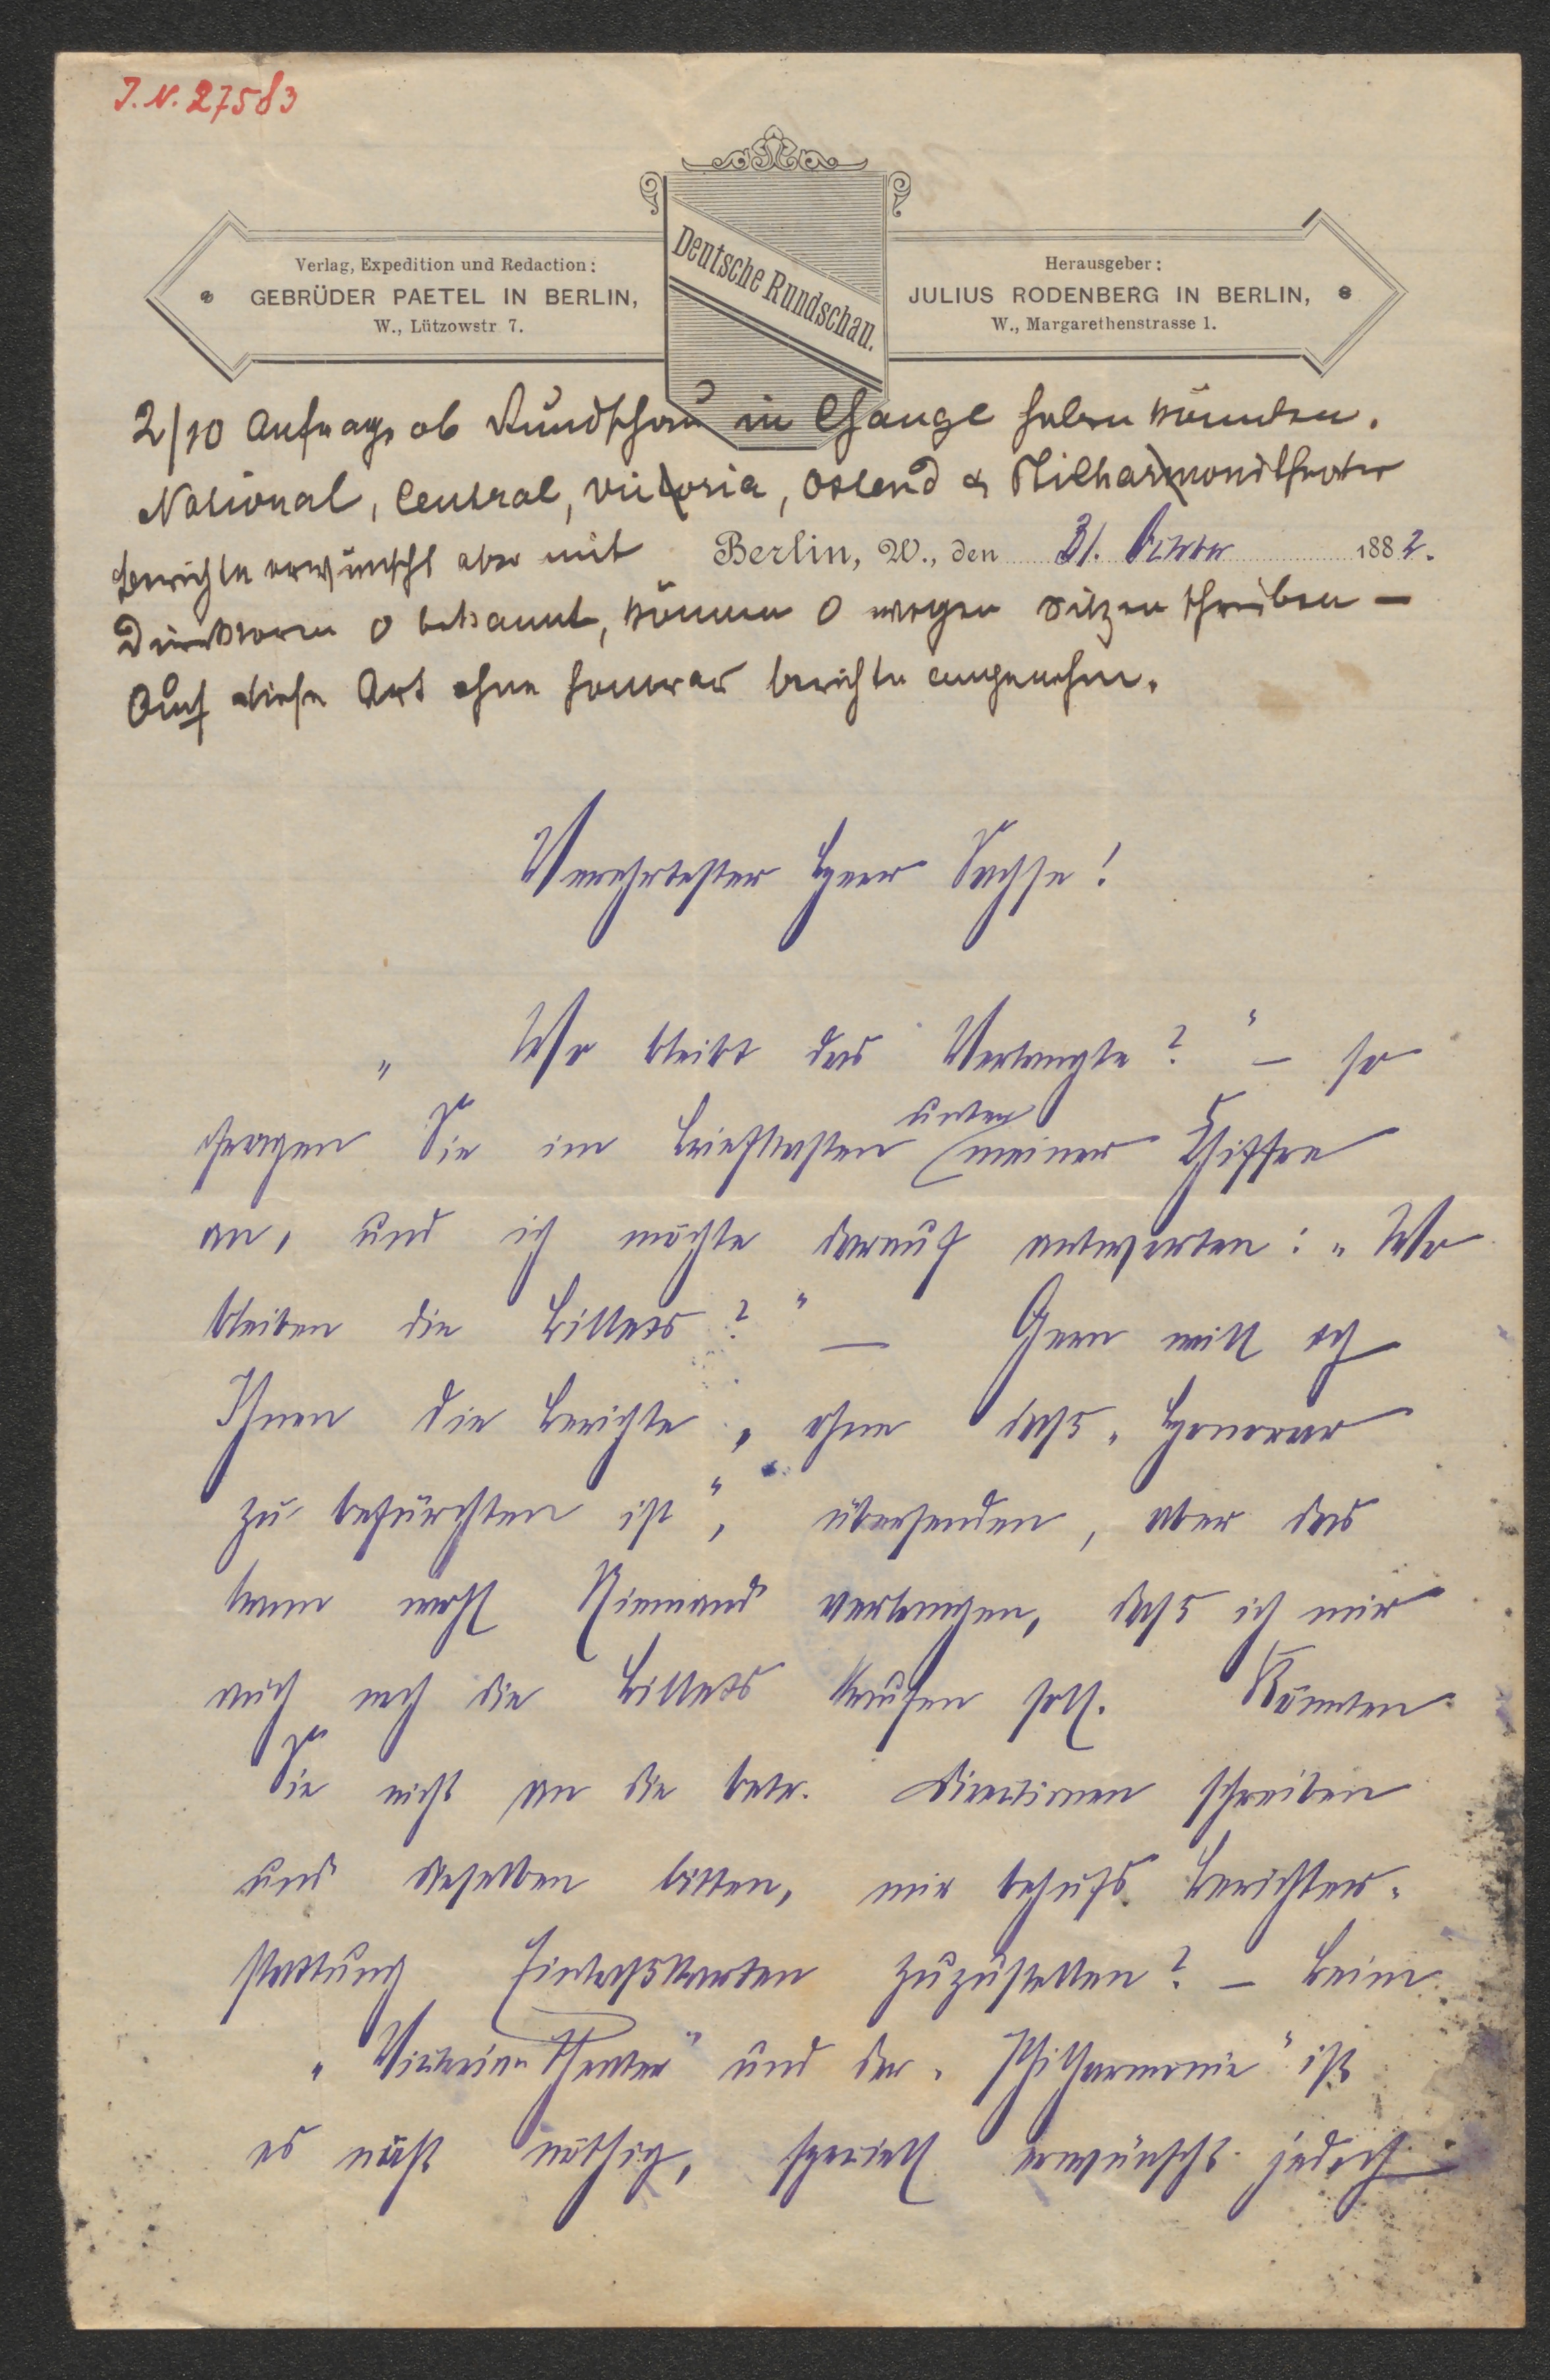 J. N. 27583
Verlag, Expedition und Redaction:
GEBRÜDER PAETEL IN BERLIN,
W., Lützowstr 7.
Deutsche Rundschau.
Herausgeber:
JULIUS RODENBERG IN BERLIN,
W., Margarethenstrasse 1.
2/10 Anfrage ob Rundschau in Change haben könnten.
National, Central, Victoria, Ostend & Philharmonictheater
berichte erwünscht aber mit
Berlin, W., den 31. October 1882.
Direktoren 0 bekannt, können 0 wegen Sitzen schreiben –
Auf diese Art ohne Honorar berichte angenehm.
Verehrtester Herr Sachse!
„Wo bleibt das Verlangte?“ – so
fragen Sie im Briefkasten unter meiner Chiffre
an, und ich möchte darauf antworten: „Wo
bleiben die Billets?“ – Gern will ich
Ihnen die Berichte, „ohne daß Honorar
zu befürchten ist“, übersenden, aber das
kann wohl Niemand verlangen, daß ich mir
auch noch die Billets kaufen soll. Könnten
Sie nicht an die betr. Directionen schreiben
und dieselben bitten, mir behufs Berichter-
stattung Einlaßkarten zuzustellen? – Beim
„Victoria-Theater“ und der „Philharmonie“ ist
es nicht nöthig, speciell erwünscht jedoch